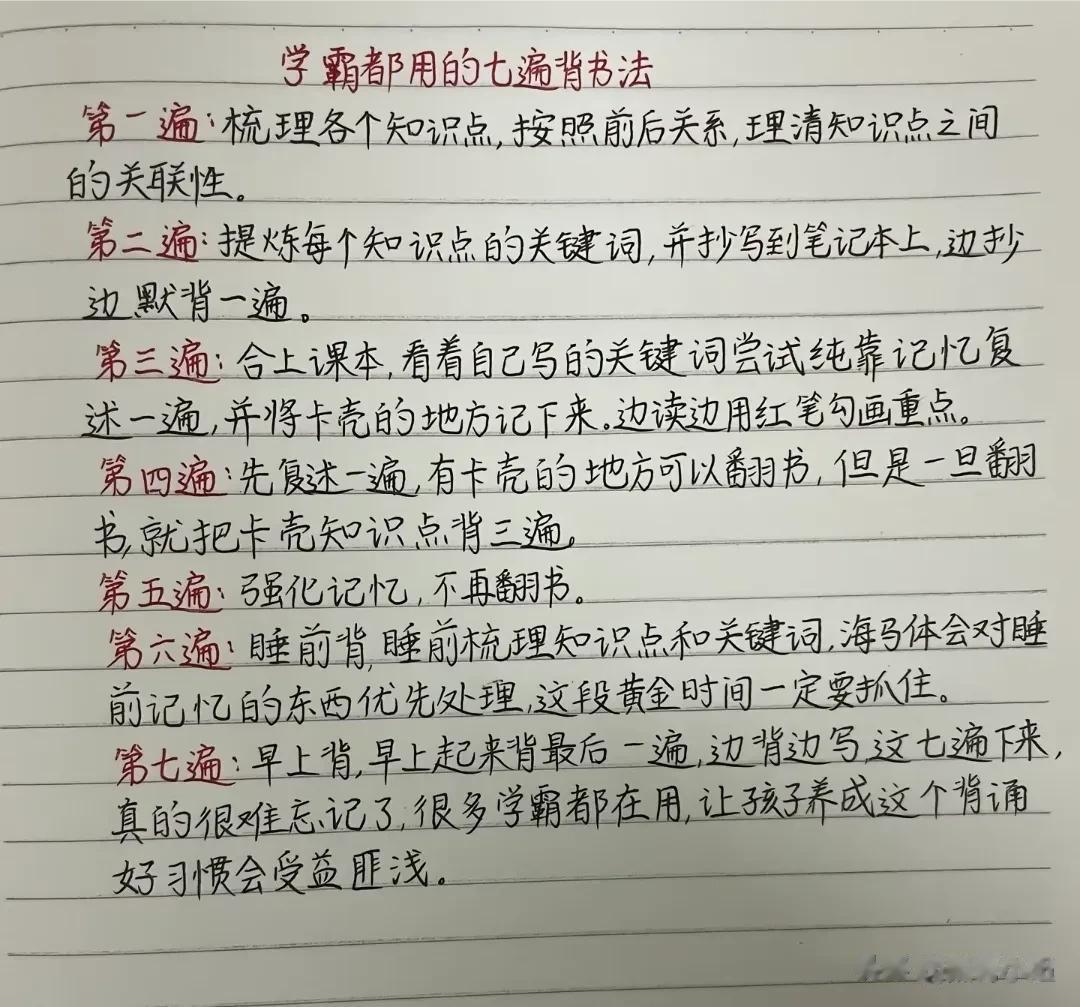 学霸都用的七遍背书法
第一遍:梳理各个知识点,按照前后关系,理清知识点之间
的关联性。
第二遍:提炼每个知识点的关键词,并抄写到笔记本上,边抄
边默背一遍。
第三遍:合上课本,看着自己写的关键词尝试纯靠记忆复
述一遍,并将卡壳的地方记下来。边读边用红笔勾画重点。
第四遍:先复述一遍,有卡壳的地方可以翻书,但是一旦翻
书,就把卡壳知识点背三遍。
第五遍:强化记忆,不再翻书。
第六遍:睡前背,睡前梳理知识点和关键词,海马体会对睡
前记忆的东西优先处理,这段黄金时间一定要抓住。
第七遍:早上背,早上起来背最后一遍,边背边写,这七遍下来,
真的很难忘记了,很多学霸都在用,让孩子养成这个背诵
好习惯会受益匪浅。